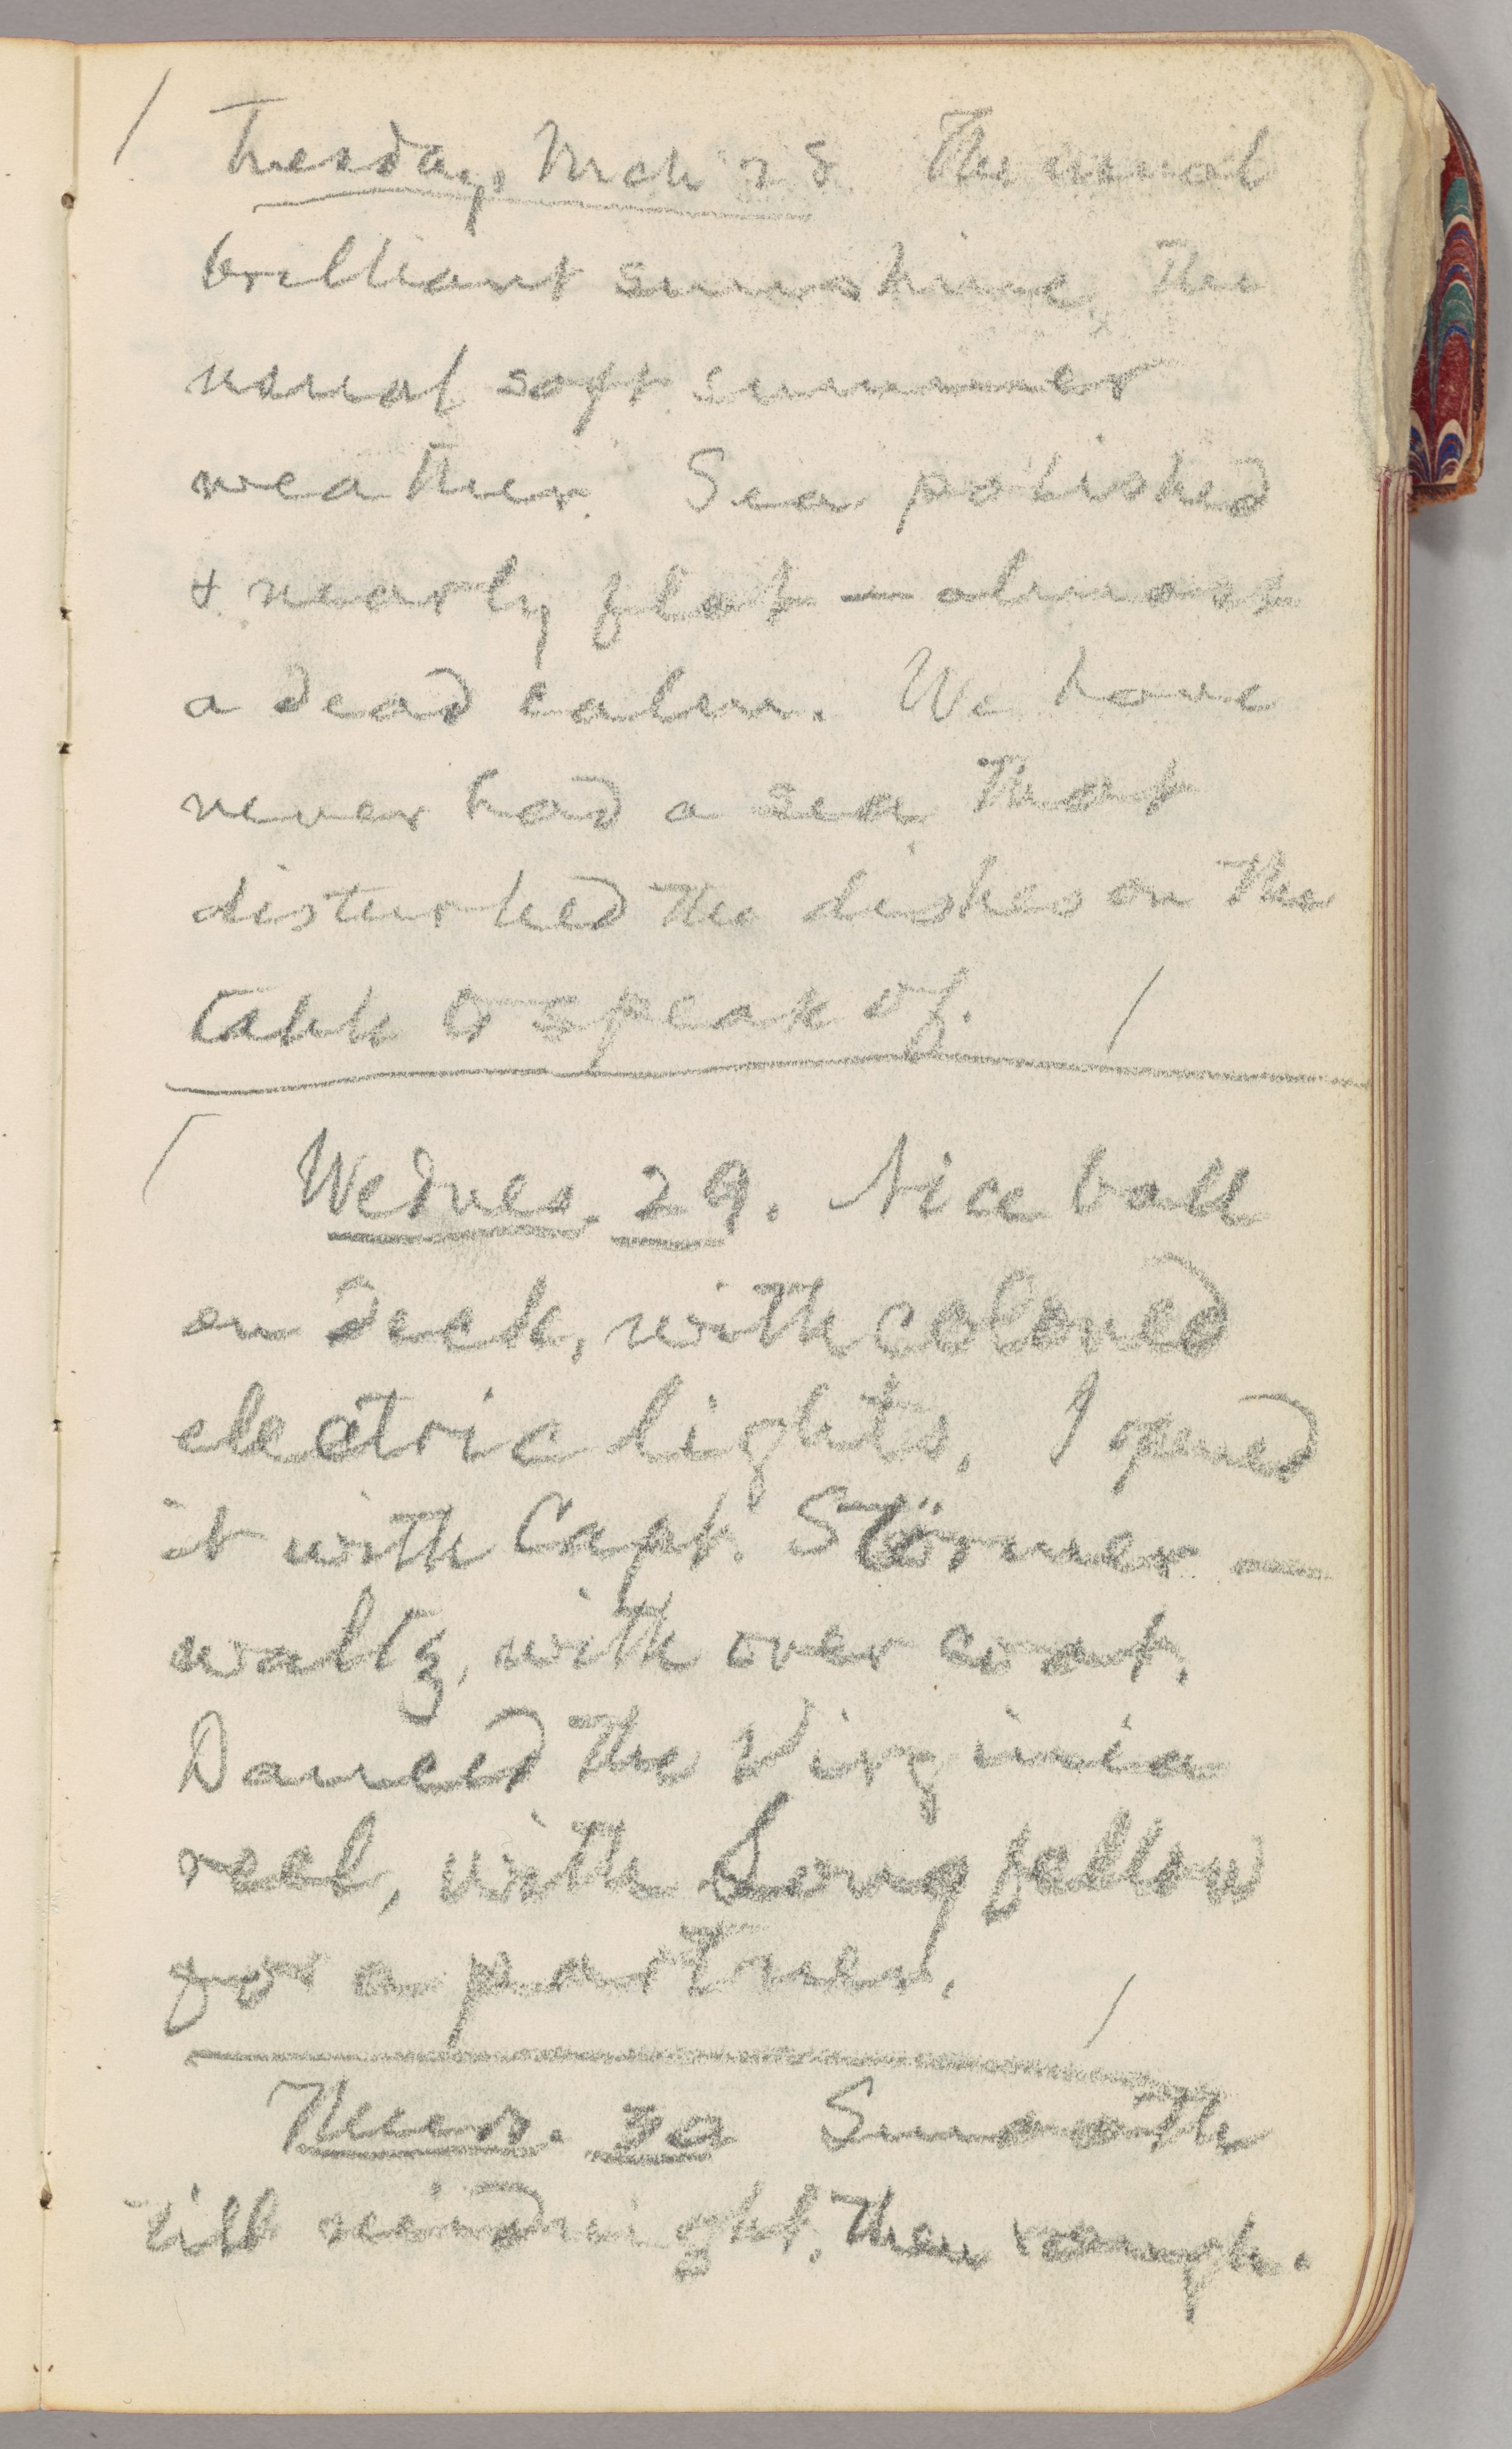 Tuesday, Mch 28. The usual
brilliant sunshine, the
usual soft summer
weather. Sea polished
& nearly flat — almost
a dead calm. We have
never had a sea that
disturbed the dishes on the
table to speak of.
Wednes. 29. Nice ball
on deck, with colored
electric lights. I opened
it with Capt. Störmer —
waltz, with over coat.
Danced the Virginia
reel, with Longfellow
for a partner.
Thurs. 30 Smooth
till midnight, then rough.